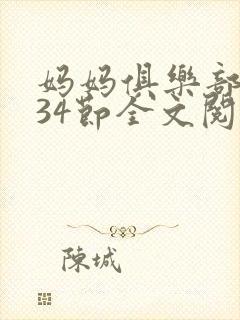 妈妈俱樂部
34節全文閱
陳城